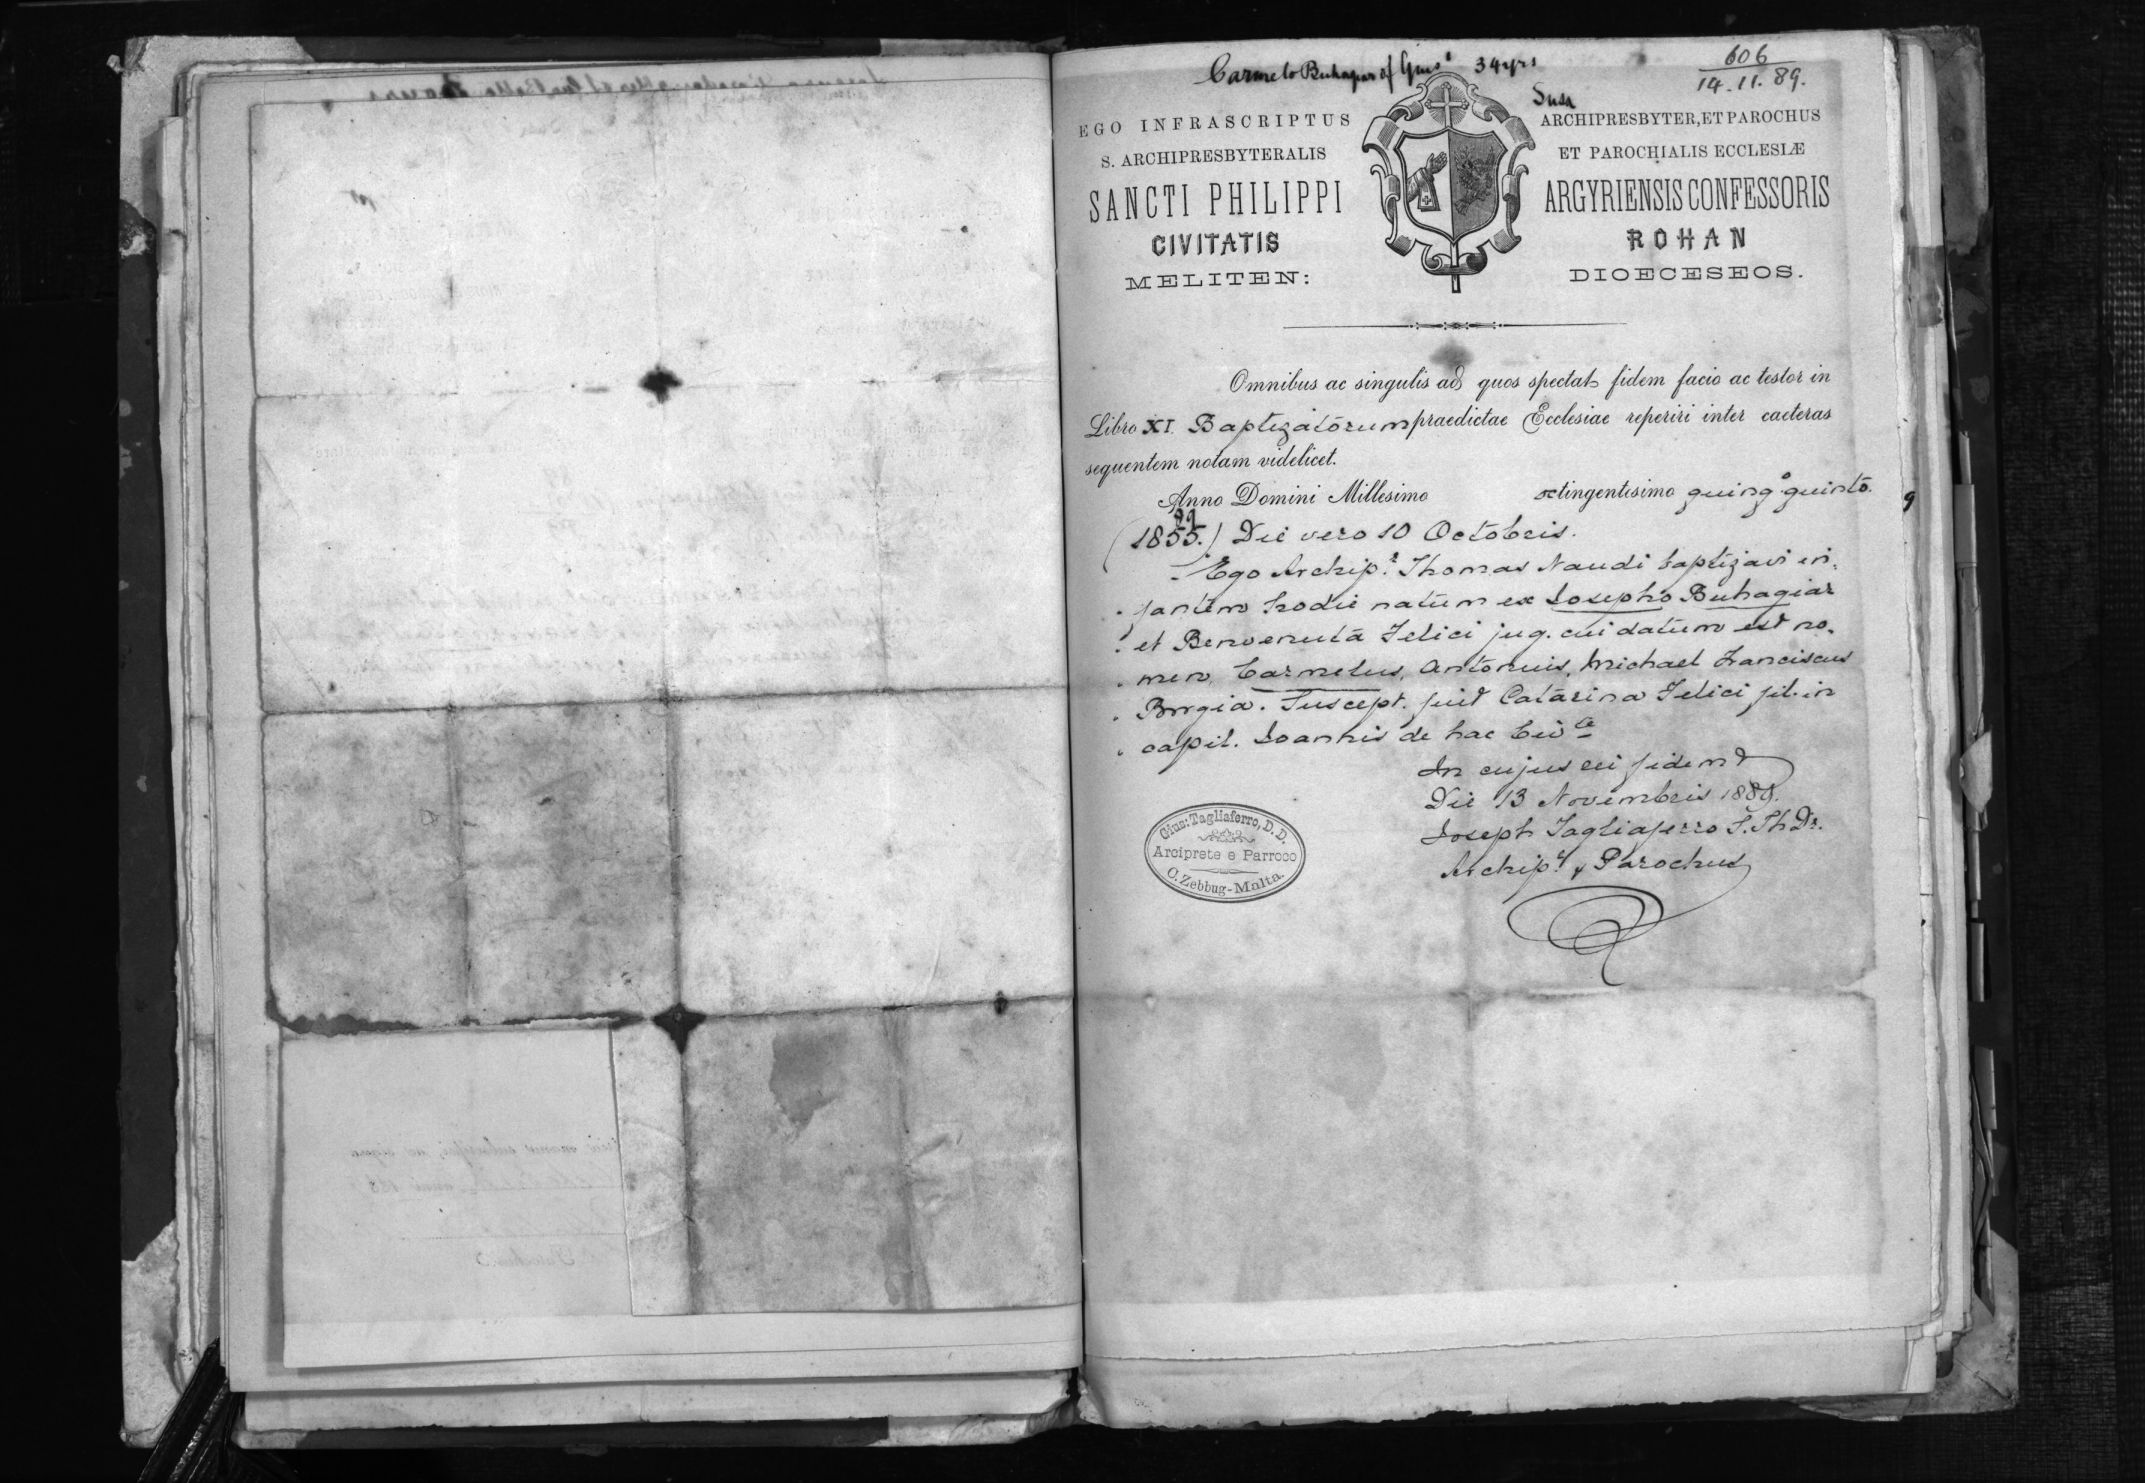 Carmelo Buhagiar of Gius^e 34 yrs
Susa
606
14.11.89.
EGO INFRASCRIPTUS ARCHIPRESBYTER, ET PAROCHUS
S. ARCHIPRESBYTERALIS ET PAROCHIALIS ECCLESIÆ
SANCTI PHILIPPI ARGYRIENSIS CONFESSORIS
CIVITATIS ROHAN
MELITEN: DIOECESEOS.
Omnibus ac singulis ad quos spectat fidem facio ac testor in
Libro XI. Baptizatorum praedictae Ecclesiae reperiri inter caeteras
sequentem notam videlicet.
Anno Domini Millesimo octingentesimo quinq.° quinto.
89
(1855.) Die vero 10 Octobris.
Ego Archip.r Thomas Naudi baptizavi in-
fantem hodie natum ex Josepho Buhagiar
et Benvenuta Felici jug. cui datum est no-
men, Carmelus, Antonius, Michael Franciscus
Borgia. Suscept. fuit Catarina Felici fil. in
capil. Joannis de hac Civ.te
In cujus rei fidem
Die 13 Novembris 1889.
Joseph Tagliaferro S. Th Dr.
Archip.r & Parochus
Gius: Tagliaferro, D. D.
Arciprete e Parroco
C. Zebbug-Malta.